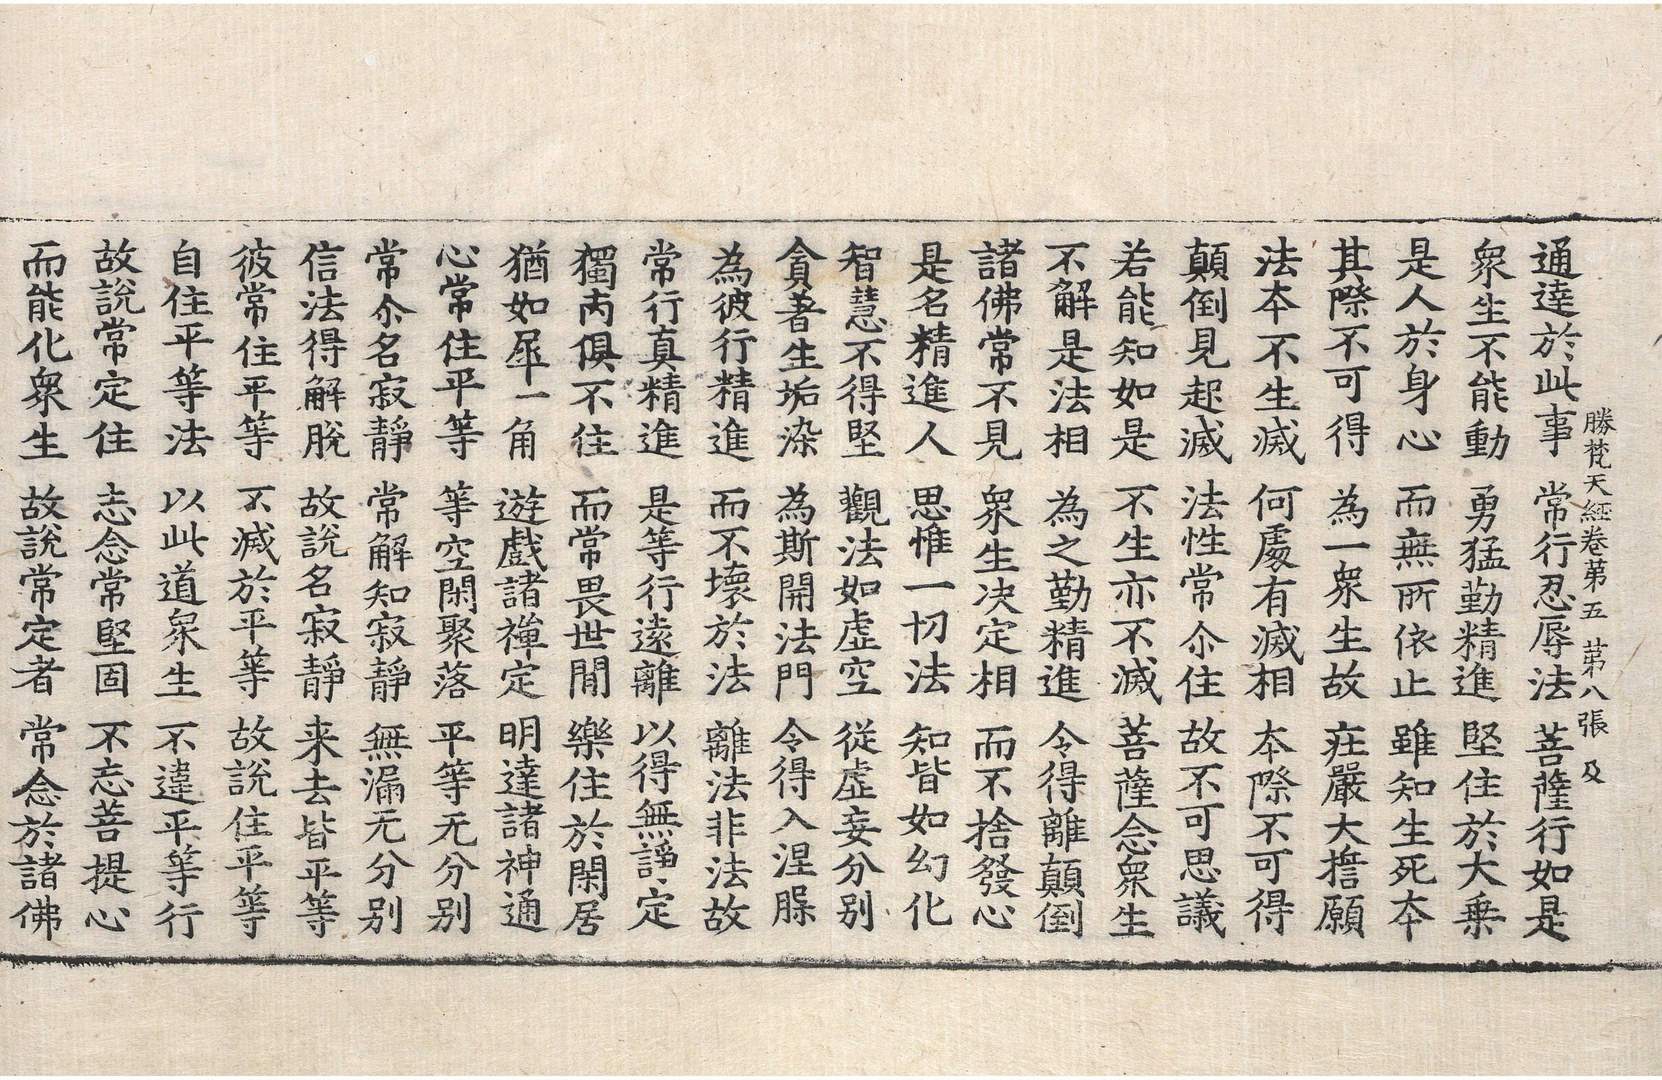 勝梵天經卷第五 第八張 及
通達於此事 常行忍辱法 菩薩行如是
衆生不能動 勇猛勤精進 堅住於大乗
是人於身心 而無所依止 雖知生死夲
其際不可得 為一衆生故 莊嚴大擔願
法夲不生滅 何處有滅相 夲際不可得
顛倒見起滅 法性常尒住 故不可思議
若能知如是 不生亦不滅 菩薩念衆生
不解是法相 為之勤精進 令得離顛倒
諸佛常不見 衆生决定相 而不捨發心
是名精進人 思惟一切法 知皆如幻化
智慧不得堅 觀法如虛空 從虛妄分别
貪著生垢染 為斯開法門 令得入涅槃
為彼行精進 而不壊於法 離法非法故
常行真精進 是等行遠離 以得無諍定
獨而俱不住 而常畏世間 樂住於閑居
猶如犀一角 遊戲諸禪定 明達諸神通
心常住平等 等空閑聚落 平等无分别
常尒名寂静 常解知寂静 無漏无分别
信法得解脫 故說名寂静 来去皆平等
彼常住平等 不滅於平等 故說住平等
自住平等法 以此道衆生 不違平等行
故說常定住 志念常堅固 不忘菩提心
而能化衆生 故說常定者 常念於諸佛